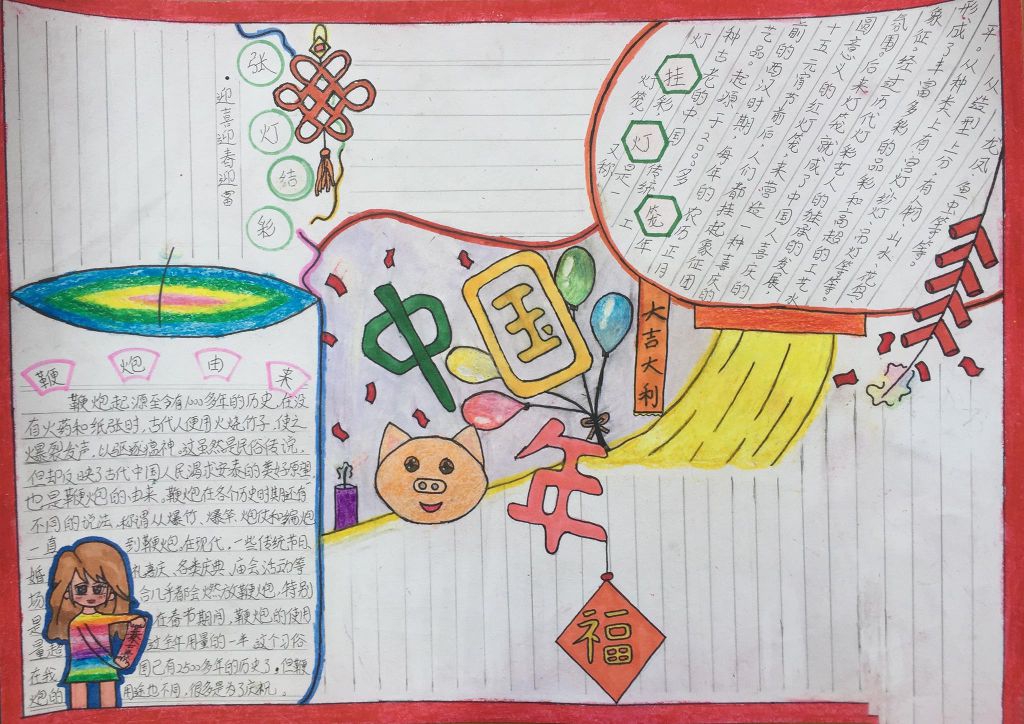 张灯结彩
迎喜迎春迎富
挂灯笼
灯笼,又称
灯彩,是一
种古老的中国传统工
艺品。起源于2000多年
前的西汉时期,每年的农历正月
十五元宵节前后,人们都挂起象征团
圆意义的红灯笼,来营造一种喜庆的
氛围。后来灯笼就成了中国人喜庆的
象征。经过历代灯彩艺人的继承的发展,
形成了丰富多彩的品彩和高超的工艺水
平。从种类上有宫灯,纱灯,吊灯等等。
从造型上分,有人物,山水,花鸟,
龙凤,鱼虫等等。
中国年
大吉大利
福
鞭炮由来
鞭炮起源至今有1000多年的历史,在没
有火药和纸张时,古代人便用火烧竹子,使之
爆裂发声,以驱逐瘟神。这虽然是民俗传说,
但却反映了古代中国人民渴求安泰的美好愿望
也是鞭炮的由来。鞭炮在各个历史时期还有
不同的说法,称谓从爆竹、爆竿、炮仗和编炮
一直到鞭炮。在现代,一些传统节日、
婚礼喜庆、各类庆典、庙会活动等
场合几乎都会燃放鞭炮,特别
是在春节期间,鞭炮的使用
量超过全年用量的一半。这个习俗
在我国已有2500多年的历史了。但鞭
炮的用途也不同,很多是为了庆祝。